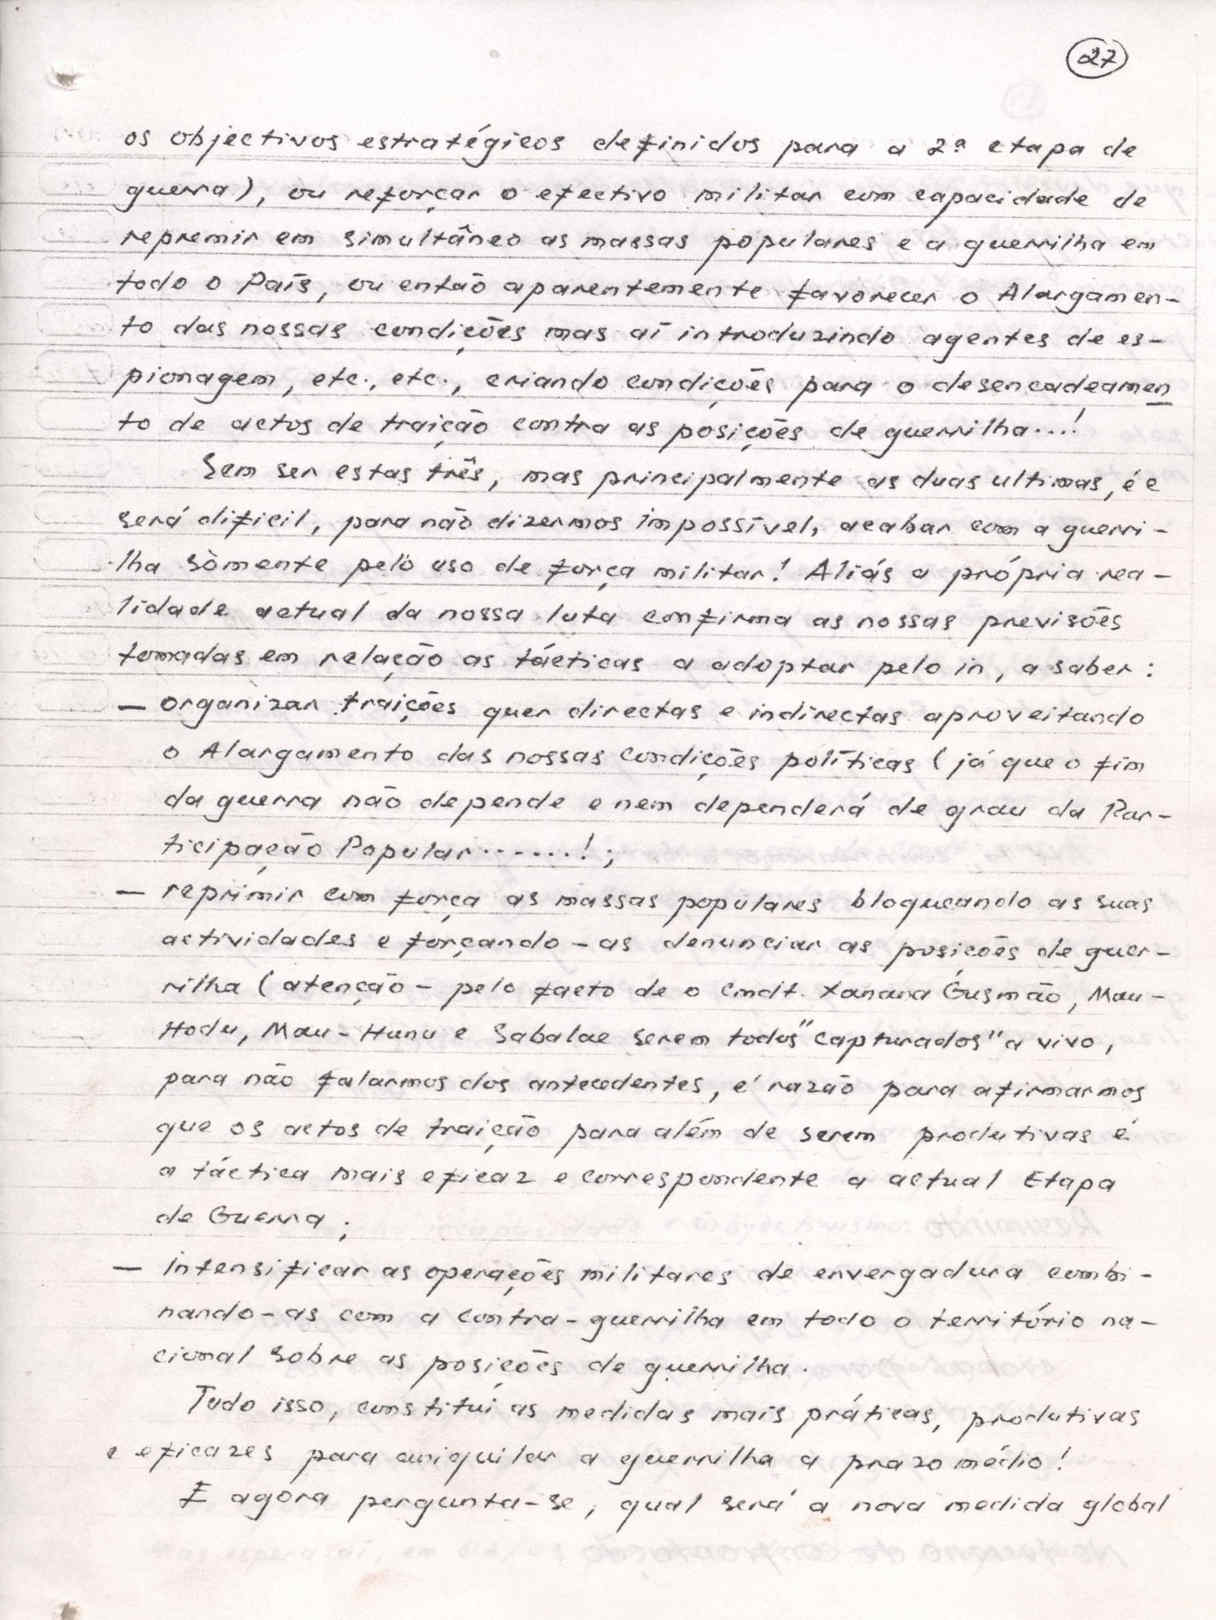 27
os objectivos estratégicos definidos para a 2ª etapa de
guerra), ou reforçar o efectivo militar com capacidade de
repremir em simultâneo as massas populares e a guerrilha em
todo o País, ou então aparentemente favorecer o Alargamen-
to das nossas condições mas aí introduzindo agentes de es-
pionagem, etc., etc., criando condições para o desencadeamen
to de actos de traição contra as posições de guerrilha...!
Sem ser estas três, mas principalmente as duas ultimas, é e
será dificil, para não dizermos impossível, acabar com a guerri-
lha sòmente pelo uso de força militar! Aliás a própria rea-
lidade actual da nossa luta confirma as nossas previsões
tomadas em relação as tácticas a adoptar pelo in, a saber:
— organizar traições quer directas e indirectas aproveitando
o Alargamento das nossas condições políticas (já que o fim
da guerra não depende e nem dependerá de grau da Par-
ticipação Popular......!;
— reprimir com força as massas populares bloqueando as suas
actividades e forçando-as denunciar as posicões de guer-
rilha (atenção - pelo facto de o Cmdt. Xanana Gusmão, Mau-
Hodu, Mau-Hunu e Sabalae serem todos "capturados" a vivo,
para não falarmos dos antecedentes, é razão para afirmarmos
que os actos de traição para além de serem produtivas é
a táctica mais eficaz e correspondente a actual Etapa
de Guerra;
— intensificar as operações militares de envergadura combi-
nando-as com a contra-guerrilha em todo o território na-
cional sobre as posições de guerrilha.
Tudo isso, constituí as medidas mais práticas, produtivas
e eficazes para aniquilar a guerrilha a prazo médio!
E agora pergunta-se, qual será a nova medida global